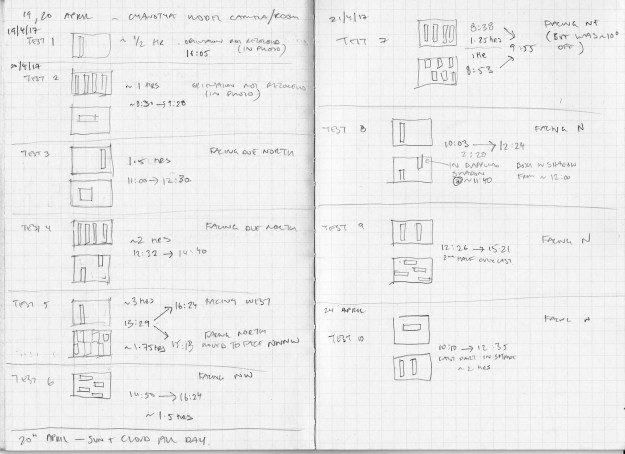 19, 20 APRIL ~ CYANOTYPE MODEL CAMERA/ROOM
19/4/17
TEST 1
~ 1/2 HR
ORIENTATION NOT RECORDED
(IN PHOTO)
16:05
20/4/17
TEST 2
~ 1 HRS
ORIENTATION NOT RECORDED
(IN PHOTO)
~8:30 → 9:28
TEST 3
1.5 HRS
FACING DUE NORTH
11:00 → 12:30
TEST 4
FACING DUE NORTH
~2 HRS
12:32 → 14:40
TEST 5
~3 HRS
16:24
FACING WEST
15:29
FACING NORTH
~1.75 HRS
MOVED TO FACE
TEST 6
FACING
→ 16:24
~ 1.5 HRS
20TH APRIL — SUN + CLOUD ALL DAY
21/4/17
TEST 7
8:38
1.25 HRS
1 HR
8:53
9:55
FACING
(BUT WAS ~10° OFF)
TEST 8
FACING N
10:03 → 12:24
2:20
IN DAPPLED SHADOW
@ ~11:40
BOTH IN SHADOW
FROM ~ 12:00
TEST 9
FACING N
12:26 → 15:21
HALF OVERCAST
24 APRIL
TEST 10
FACING
10:10 → 12:35
LAST PART IN SHADOW
~ 2 HRS